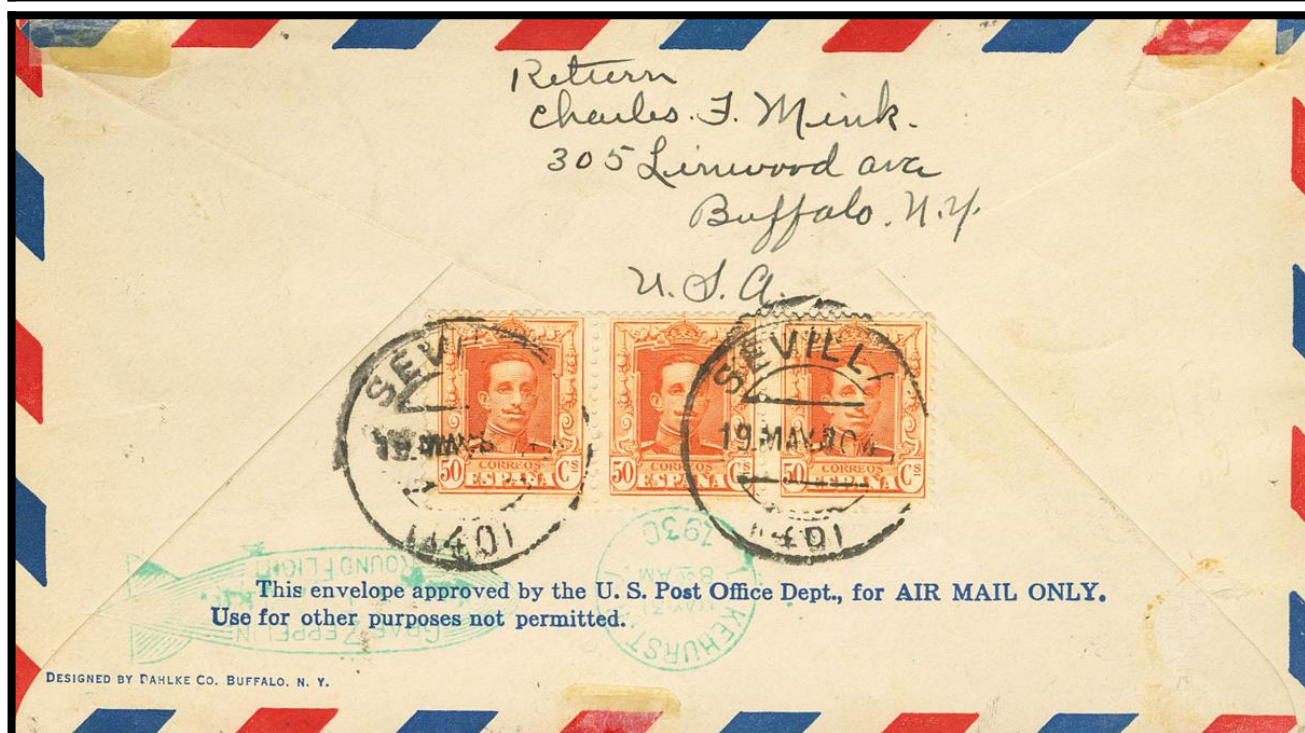 Return
Charles. F. Mink.
305 Linwood ave
Buffalo. N.Y.
U.S.A.
SEVI
SEVILL
19 MAY 30
50 CORREOS ESPAÑA Cs
50 CORREOS ESPAÑA Cs
50 CORREOS ESPAÑA Cs
1930
8 AM
KEHURST
ROUND FLIGHT
GRAF ZEPPELIN
This envelope approved by the U. S. Post Office Dept., for AIR MAIL ONLY.
Use for other purposes not permitted.
DESIGNED BY DAHLKE CO. BUFFALO, N. Y.